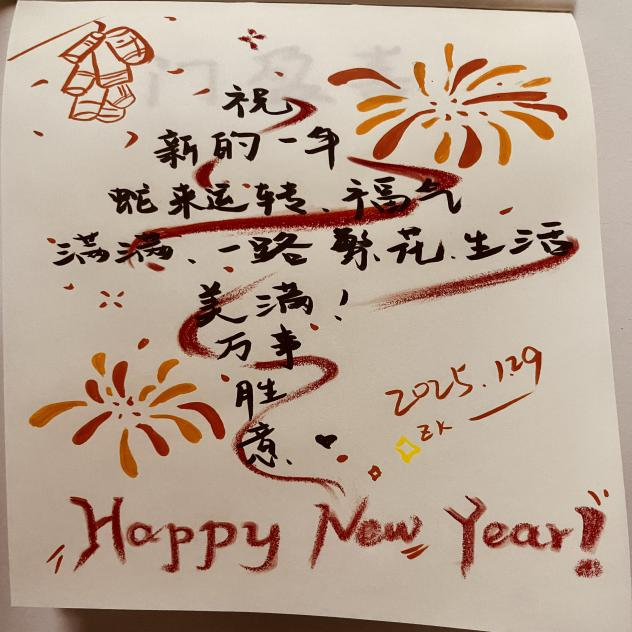 祝
新的一年
蛇来运转、福气
满满、一路繁花、生活
美满！
万事
胜
意、
2025.1.29
ZK
Happy New Year!